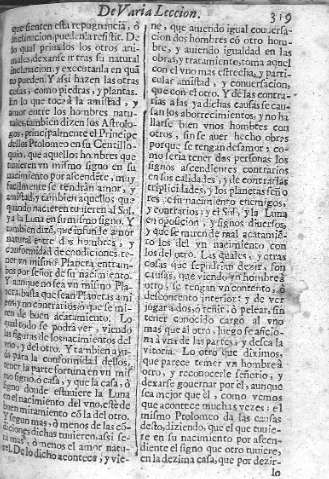 De Varia Leccion. 319
que sienten esta repugnancia, ò
inclinacion, puedenla resistir. De
lo qual priuaselos los otros ani-
males, dexanse ir tras su natural
inclinacion, y executanla en quãto
pueden. Y assi hazen las otras
cosas, como piedras, y plantas.
En lo que toca à la amistad, y
amor entre los hombres natu-
rales, tambien dizen los Astrolo-
gos, principalmente el Principe
dellos Ptolomeo en su Centillo-
quio, que aquellos hõbres que
tuuieren vn mismo signo en su
nacimiento por ascendẽte, muy
facilmente se tendràn amor, y
amistad, y tambien aquellos que
quando nacieron tuuieren al Sol,
y la Luna en su mismo signo. Y
tambien dizẽ, que infunde amor
natural entre dos hombres, y
conformidad de condiciones, te-
ner vn mismo Planeta entram-
bos por señor de su nacimiento.
Y aunque no sea vn mismo Pla-
neta, basta que sean Planetas ami
gos, y no contrarios, ò que se mi-
ren de buen acatamiento. Lo
qual todo se podrà ver, viendo
las figuras de los nacimientos del
vno, y del otro. Y tambien ayu-
da para la conformidad dellos,
tener la parte fortuna en vn mis
mo signo, ò casa, y que la casa, ò
signo donde estuuiere la Luna
en el nacimiento del vno, estè de
buen miramiento cõ la del otro.
Y segun mas, ò menos de las cõ-
diciones dichas tuuieren, assi se-
rà mas, ò menos el amor natu-
ral. De lo dicho acontece, y vie-
ne, que auiendo igual conuersa-
cion dos hombres cõ otro hom-
bre, y auiendo igualdad en las
obras, y tratamiento, toma aquel
con el vno mas estrecha, y parti-
cular amistad, y conuersacion,
que con el otro. Y de las contra-
rias à las ya dichas causas se cau-
san los aborrecimientos, y no ha-
llarse bien vnos hombres con
otros, sin se auer hecho obras
porque se tengan desamor; co-
mo seria tener dos personas los
signos ascendientes contrarios
en sus calidades, y de contrarias
triplicidades, y los planetas seño
res de su nacimiento enemigos,
y contrarios, y el Sol, y la Luna
en oposicion, y signos diuersos,
y que se miren de mal acatamiẽ-
to los del vn nacimiento con
los del otro. Las quales, y otras
cosas que se pudieran dezir, son
causas, que viendo vn hombre à
otro, se tengan vn contento, ò
descontento interior: y de ver
jugar à dos, ò teñir, ò pelear, sin
tener conocido cargo al vno
mas que al otro, luego se aficio-
na à vna de las partes, y desea la
vitoria. Lo otro que diximos,
que parece temer vn hombre à
otro, y reconocerle señorio, y
dexarse gouernar por èl, aunque
sea mejor que èl, como vemos
que acontece muchas vezes: el
mismo Ptolomeo dà las causas
desto, diziendo, que el que tuuie-
re en su nacimiento por ascen-
diente el signo que otro tuuiere,
en la dezima casa, que por dezir-
lo